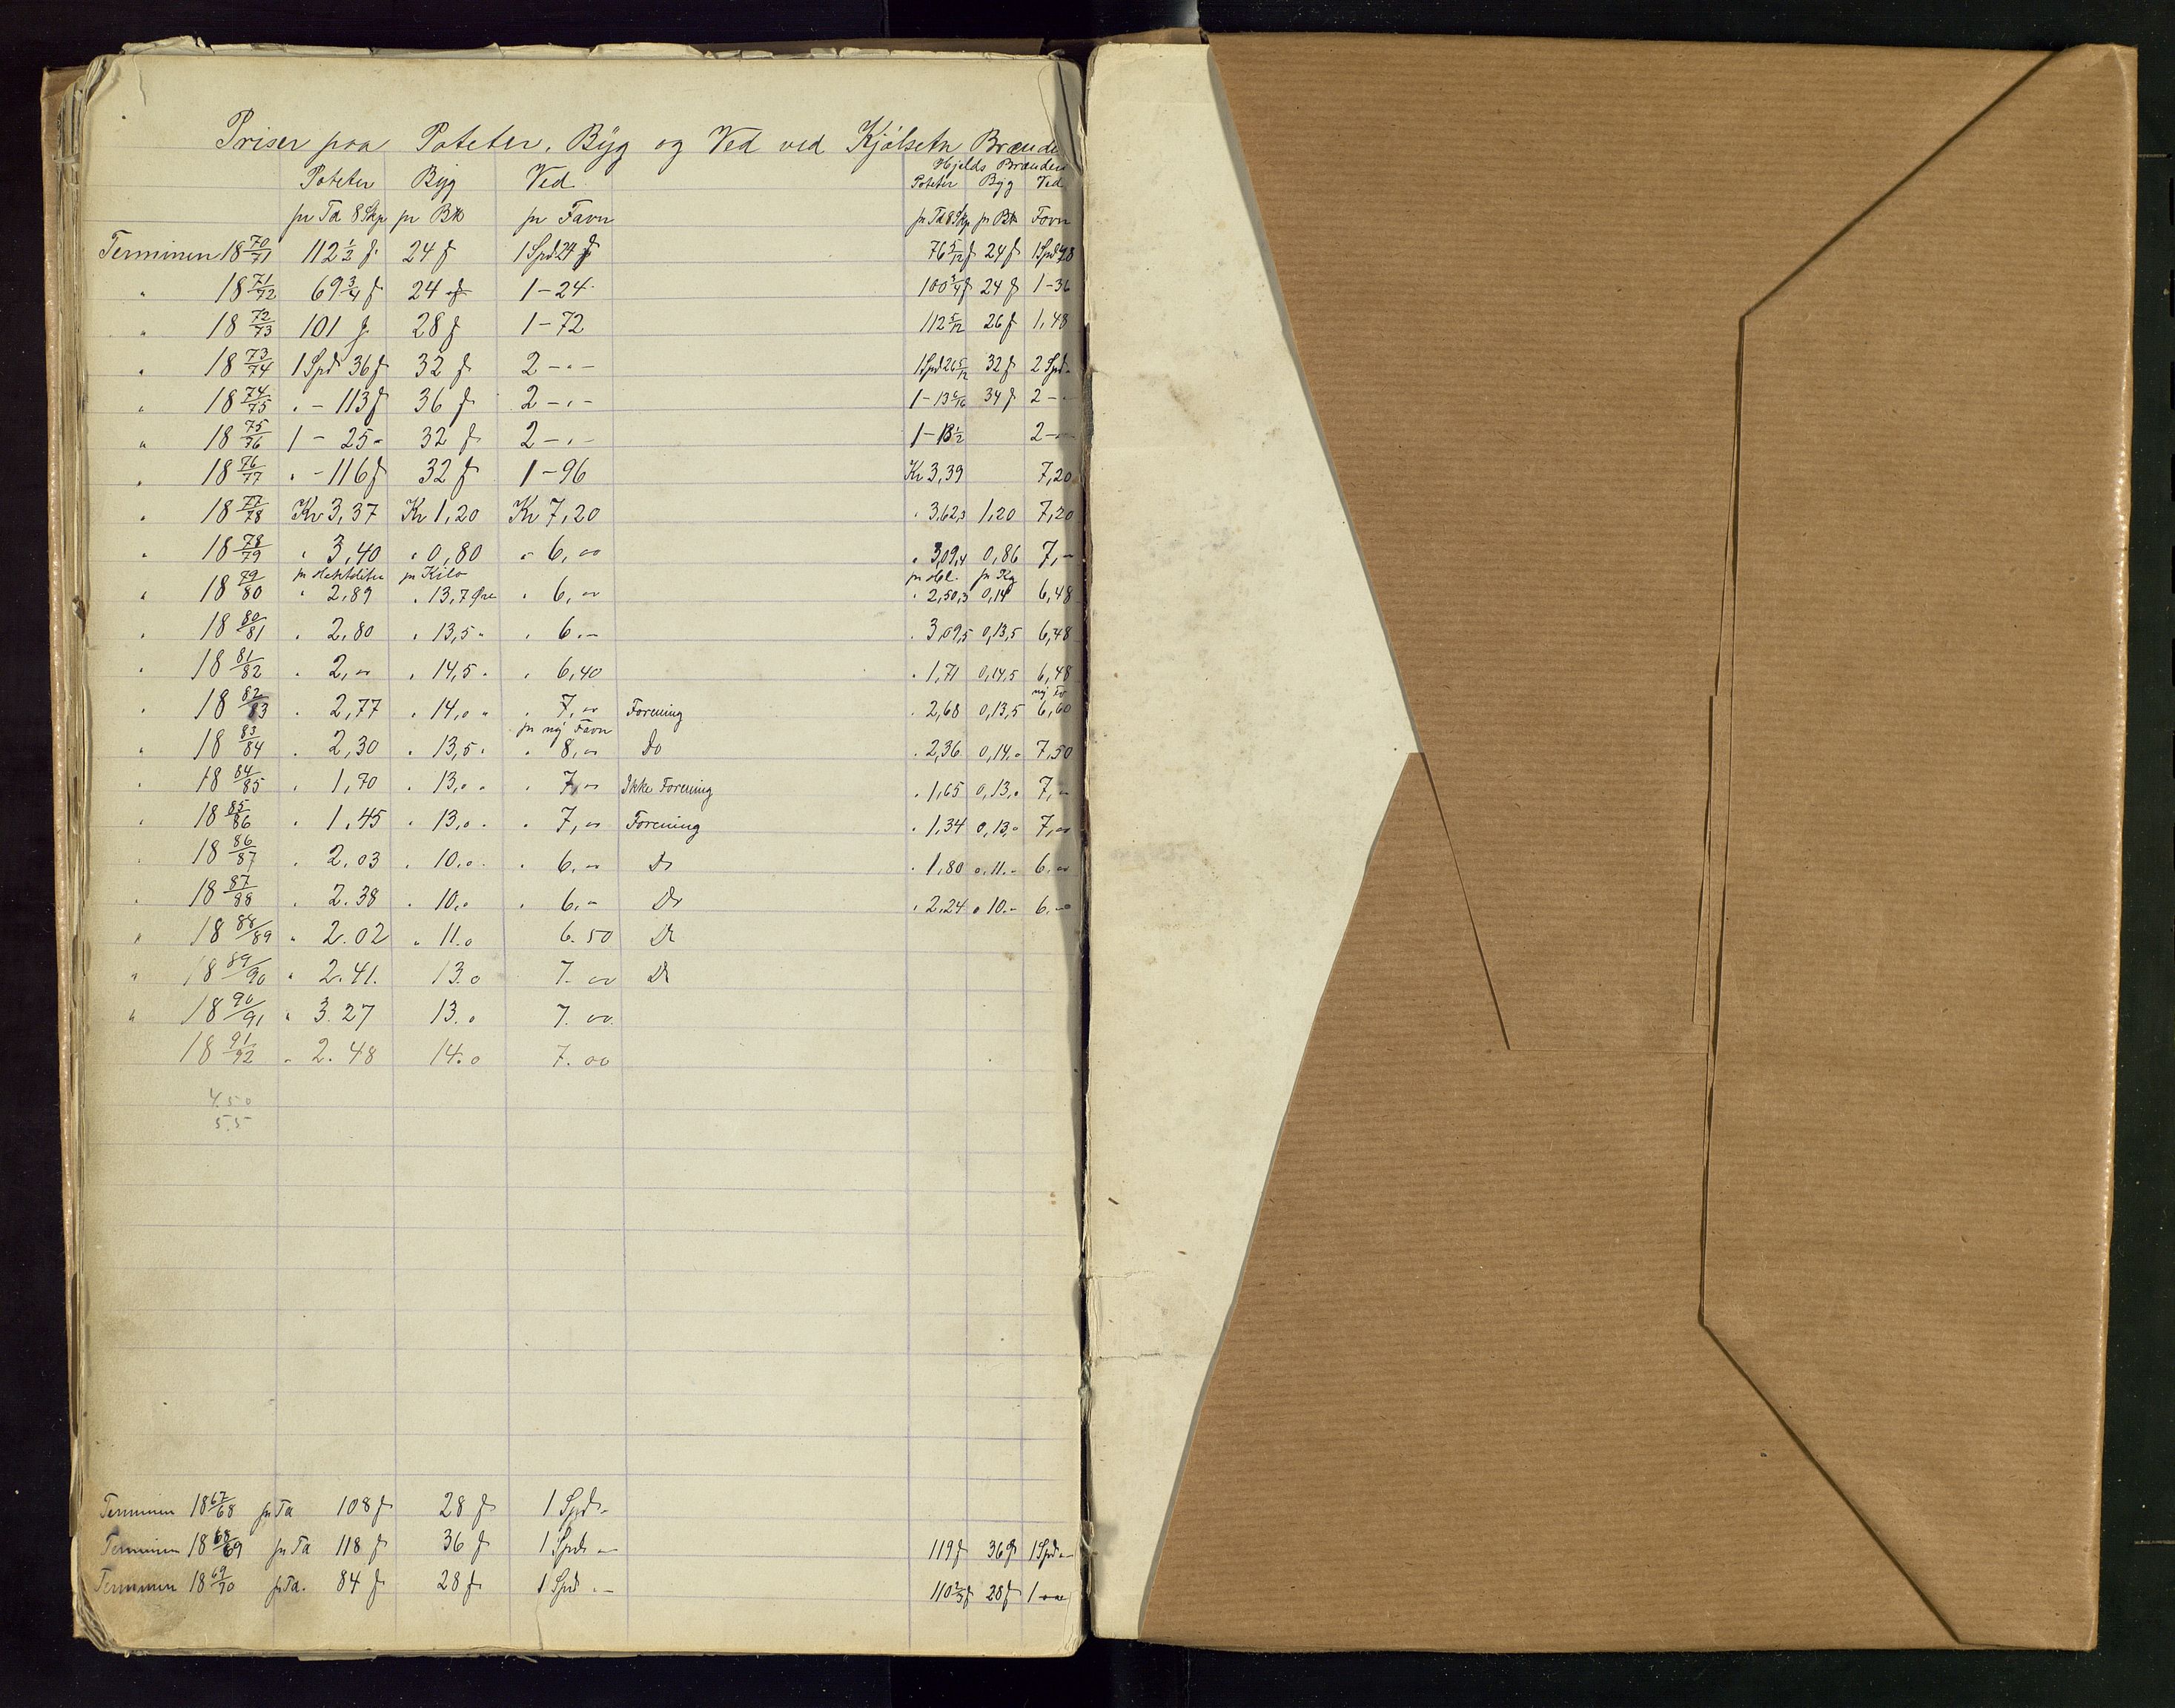 Priser paa Poteter, Byg og Ved ved Kjølsetn Brænde
Hjelds Brænderi
Poteter Byg Ved Poteter Byg Ved
pr Ta 8 Skp pr Bk pr Favn pr Ta 8 Skp pr Bk Favn
Terminen 18 70/71 112 1/2 f 24 f 1 Spd 24 f 76 5/12 f 24 f 1 Spd 48
" 18 71/72 69 3/4 f 24 f 1 - 24 100 3/4 f 24 f 1-36
" 18 72/73 101 f 28 f 1 - 72 112 5/12 26 f 1,48
" 18 73/74 1 Spd 36 f 32 f 2 - " - 1 Spd 26 5/12 32 f 2 Spd -
" 18 74/75 " - 113 f 36 f 2 - " - 1 - 13 34 f 2 -
" 18 75/76 1 - 25 - 32 f 2 - " - 1 - 13 1/2 2 -
" 18 76/77 " - 116 f 32 f 1 - 96 Kr 3,39 7,20
" 18 77/78 Kr 3,37 Kr 1,20 Kr 7,20 " 3,62,3 1,20 7,20
" 18 78/79 " 3,40 " 0,80 " 6,00 " 3,09,4 0,86 7,-
pr Hektoliter pr Kilo pr Hl. pr Kg
" 18 79/80 " 2,89 " 13,7 Øre " 6,00 " 2,50,3 0,14 6,48
" 18 80/81 " 2,80 " 13,5 " " 6.- " 3,09,5 0,13,5 6,48
" 18 81/82 " 2,00 " 14,5 " " 6,40 " 1,71 0,14,5 6,48
ny Fv
" 18 82/83 " 2,77 " 14,0 " " 7,00 Forening " 2,68 0,13,5 6,60
pr ny Favn
" 18 83/84 " 2,30 " 13,5 " " 8,00 Do " 2,36 0,14,0 7,50
" 18 84/85 " 1,70 " 13,0 " " 7,00 Ikke Forening " 1,65 0,13,0 7,-
" 18 85/86 " 1.45 " 13,0 " " 7,00 Forening " 1,34 0,13,0 7,00
" 18 86/87 " 2.03 " 10.0 " " 6,00 Do " 1,80 0.11.- 6.00
" 18 87/88 " 2.38 " 10.0 " 6.- Do " 2.24 0 10.- 6.-
" 18 88/89 " 2.02 " 11.0 6.50 Do
" 18 89/90 " 2.41. 13.0 7.00 Do
" 18 90/91 " 3.27 13.0 7.00
18 91/92 " 2.48 14.0 7.00
4.50
5.5
Terminen 18 67/68 pr Ta 108 f 28 f 1 Spd -
Terminen 18 68/69 pr Ta 118 f 36 f 1 Spd - 119 f 36 f 1 Spd -
Terminen 18 69/70 pr Ta. 84 f 28 f 1 Spd " - 110 2/3 f 28 f 1